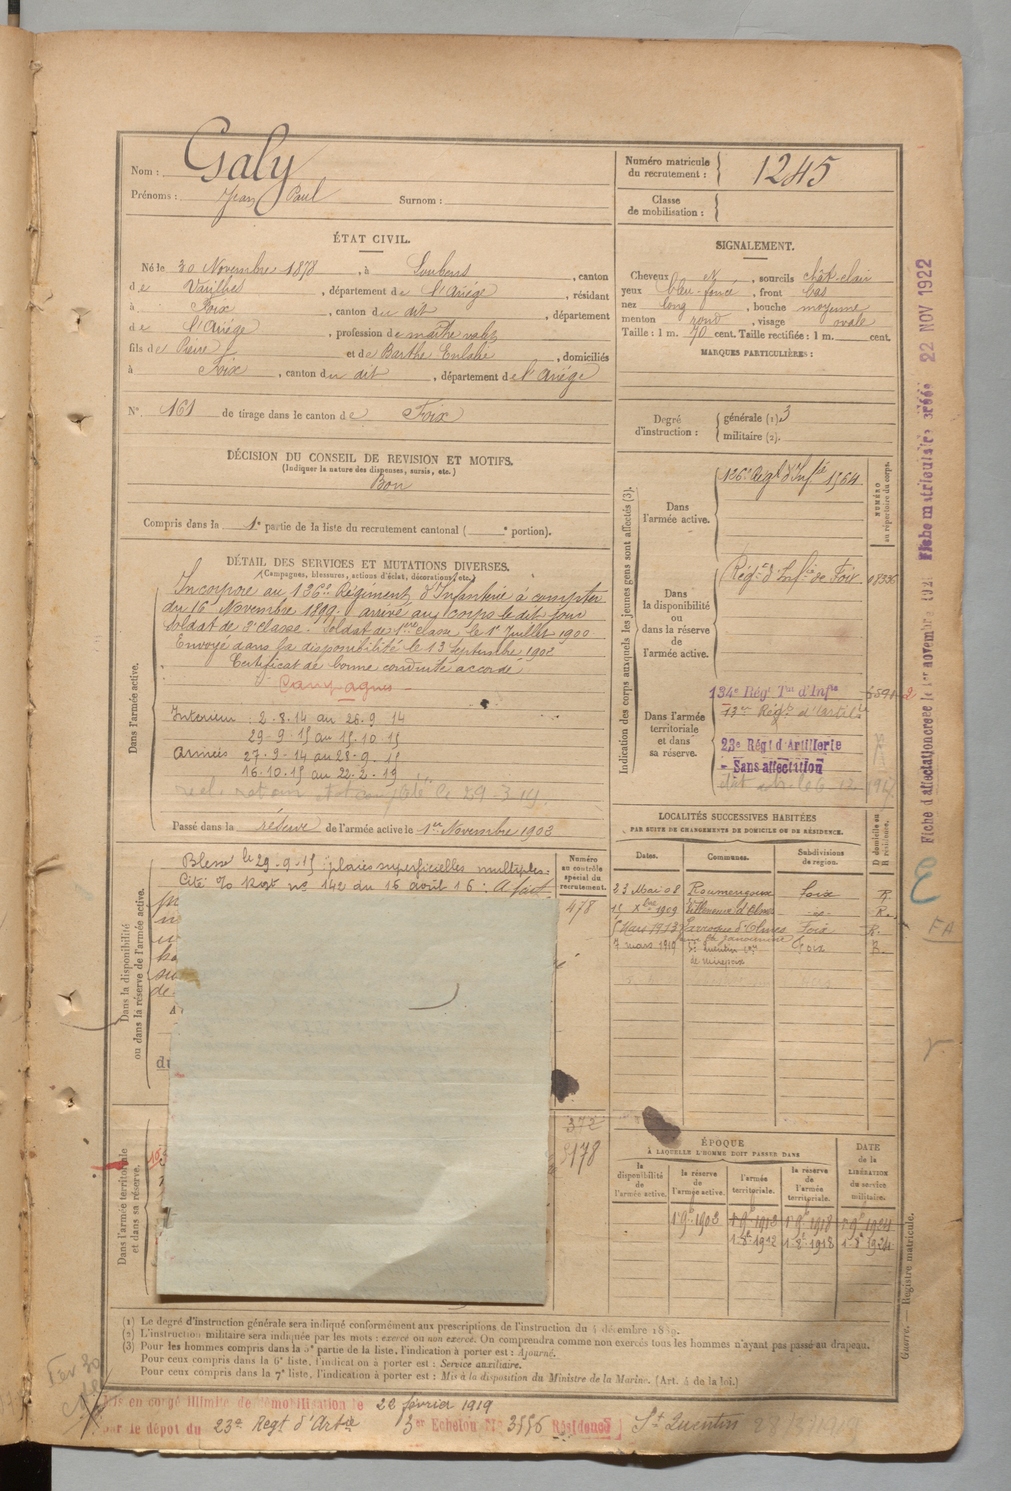 Nom : Galy
Prénoms : Jean Paul Surnom :
Numéro matricule du recrutement : 1245
Classe de mobilisation :
ÉTAT CIVIL.
Né le 30 Novembre 1878, à Loubens, canton
de Varilhes, département de l'Ariège, résidant
à Foix, canton du dit, département
de l'Ariège, profession de maître valet
fils de Pierre et de Barthe Eulalie, domiciliés
à Foix, canton du dit, département de l'Ariége
SIGNALEMENT.
Cheveux N, sourcils chât-clair
yeux bleu-foncé, front bas
nez long, bouche moyenne
menton rond, visage ovale
Taille : 1 m. 70 cent. Taille rectifiée : 1 m. cent.
MARQUES PARTICULIÈRES :
N° 161 de tirage dans le canton de Foix
Degré d'instruction : générale (1). 3
militaire (2).
DÉCISION DU CONSEIL DE REVISION ET MOTIFS.
(Indiquer la nature des dispenses, sursis, etc.)
Bon
Compris dans la 1e partie de la liste du recrutement cantonal ( e portion).
DÉTAIL DES SERVICES ET MUTATIONS DIVERSES.
(Campagnes, blessures, actions d'éclat, décorations, etc.)
Dans l'armée active.
Incorporé au 136e Régiment d'Infanterie à compter
du 16 Novembre 1899. arrivé au corps le dit jour
soldat de 2e classe. Soldat de 1ère classe le 1er Juillet 1900
Envoyé dans la disponibilité le 13 Septembre 1902
Certificat de bonne conduite accordé
Campagnes
Intérieur : 2-8-14 au 26-9-14
29-9-15 au 15-10-15
Armées 27-9-14 au 28-9-15
16-10-15 au 22-2-19
Passé dans la réserve de l'armée active le 1er Novembre 1903
Indication des corps auxquels les jeunes gens sont affectés (3).
NUMÉRO au répertoire du corps.
Dans l'armée active.
126e Régt d'Infie 1564
Dans la disponibilité ou dans la réserve de l'armée active.
Régt d'Infie de Foix
Dans l'armée territoriale et dans sa réserve.
134e Régt Tal d'Infie
23e Régt d'Artillerie
- Sans affectation
Dans la disponibilité ou dans la réserve de l'armée active.
Blessé le 29-9-15 : plaies superficielles multiples.
Cité O/ Regt no 142 du 16 août 16 : A fait
Numéro au contrôle spécial du recrutement.
478
LOCALITÉS SUCCESSIVES HABITÉES
PAR SUITE DE CHANGEMENTS DE DOMICILE OU DE RÉSIDENCE.
Dates. Communes. Subdivisions de region. D domicile ou R résidence.
23 Mai 08 Roumengoux Foix R.
15 Xbre 1909 Villeneuve d'Olmes -d°- R.
5 Mars 1913 Larroque d'Olmes Foix R.
7 mars 1919 St Quentin Foix R.
de Mirepoix
Dans l'armée territoriale et dans sa réserve.
372
178
ÉPOQUE
À LAQUELLE L'HOMME DOIT PASSER DANS
DATE de la LIBÉRATION du service militaire.
la disponibilité de l'armée active. la réserve de l'armée active. l'armée territoriale. la réserve de l'armée territoriale.
1er 9b 1903 1er 9b 1913 1er 9b 1918 1er 9b 1924
1-8t 1912 1-8t 1918 1-8t 1924
(1) Le degré d'instruction générale sera indiqué conformément aux prescriptions de l'instruction du 4 décembre 1889.
(2) L'instruction militaire sera indiquée par les mots : exercé ou non exercé. On comprendra comme non exercés tous les hommes n'ayant pas passé au drapeau.
(3) Pour les hommes compris dans la 5e partie de la liste, l'indication à porter est : Ajourné.
Pour ceux compris dans la 6e liste, l'indication à porter est : Service auxiliaire.
Pour ceux compris dans la 7e liste, l'indication à porter est : Mis à la disposition du Ministre de la Marine. (Art. 4 de la loi.)
Mis en congé illimité de démobilisation le 22 février 1919
par le dépot du 23e Regt d'Artie 3er Echelon No 3556 Résidence St Quentin
Guerre. — Registre matricule.
Fiche d'affectation créée le 1er novembre 192 Fiche matriculaire créée 22 NOV 1922
FA